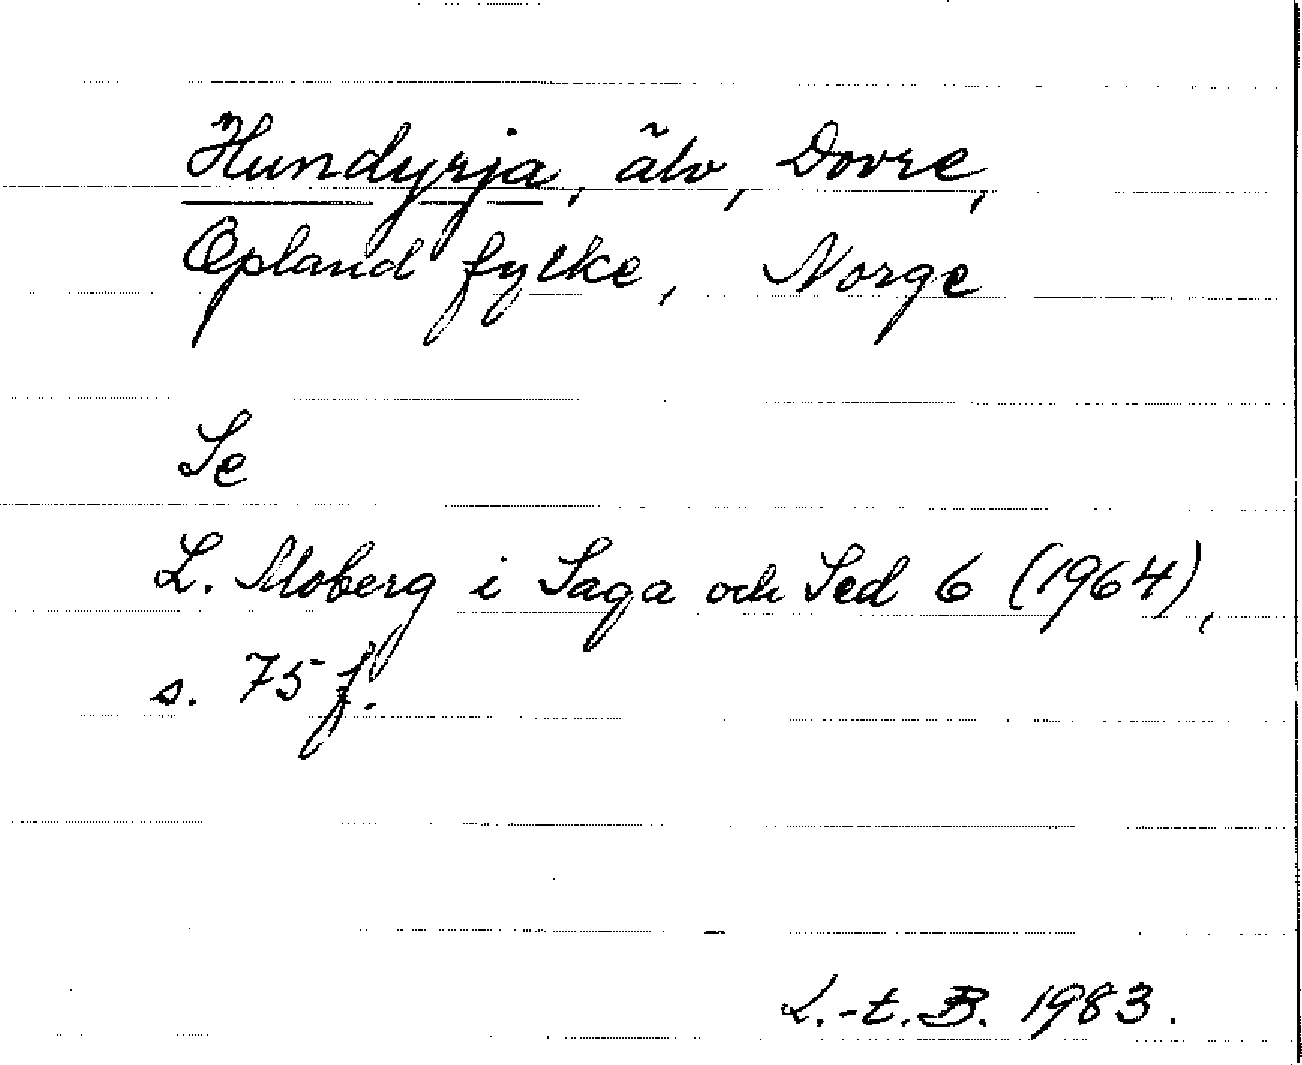 Hundyrja, älv, Dovre,
Opland fylke, Norge
Se
L. Moberg i Saga och Sed 6 (1964),
s. 75 f.
L.-t. B. 1983.